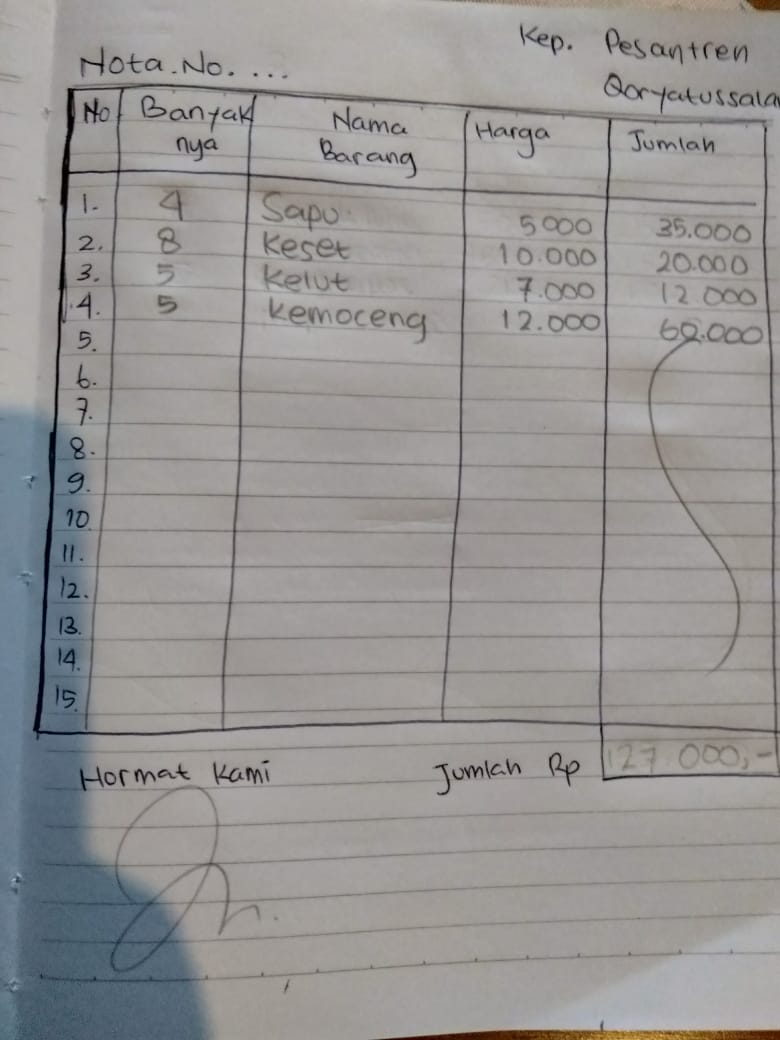 Kep. Pesantren
Nota.No. ...
Qoryatussala
No Banyak Nama Harga Jumlah
nya Barang
1. 4 Sapu 5000 35.000
2. 8 Keset 10.000 20.000
3. 5 Kelut 7.000 12.000
4. 5 Kemoceng 12.000 60.000
5.
6.
7.
8.
9.
10.
11.
12.
13.
14.
15.
Hormat Kami Jumlah Rp 127.000,-